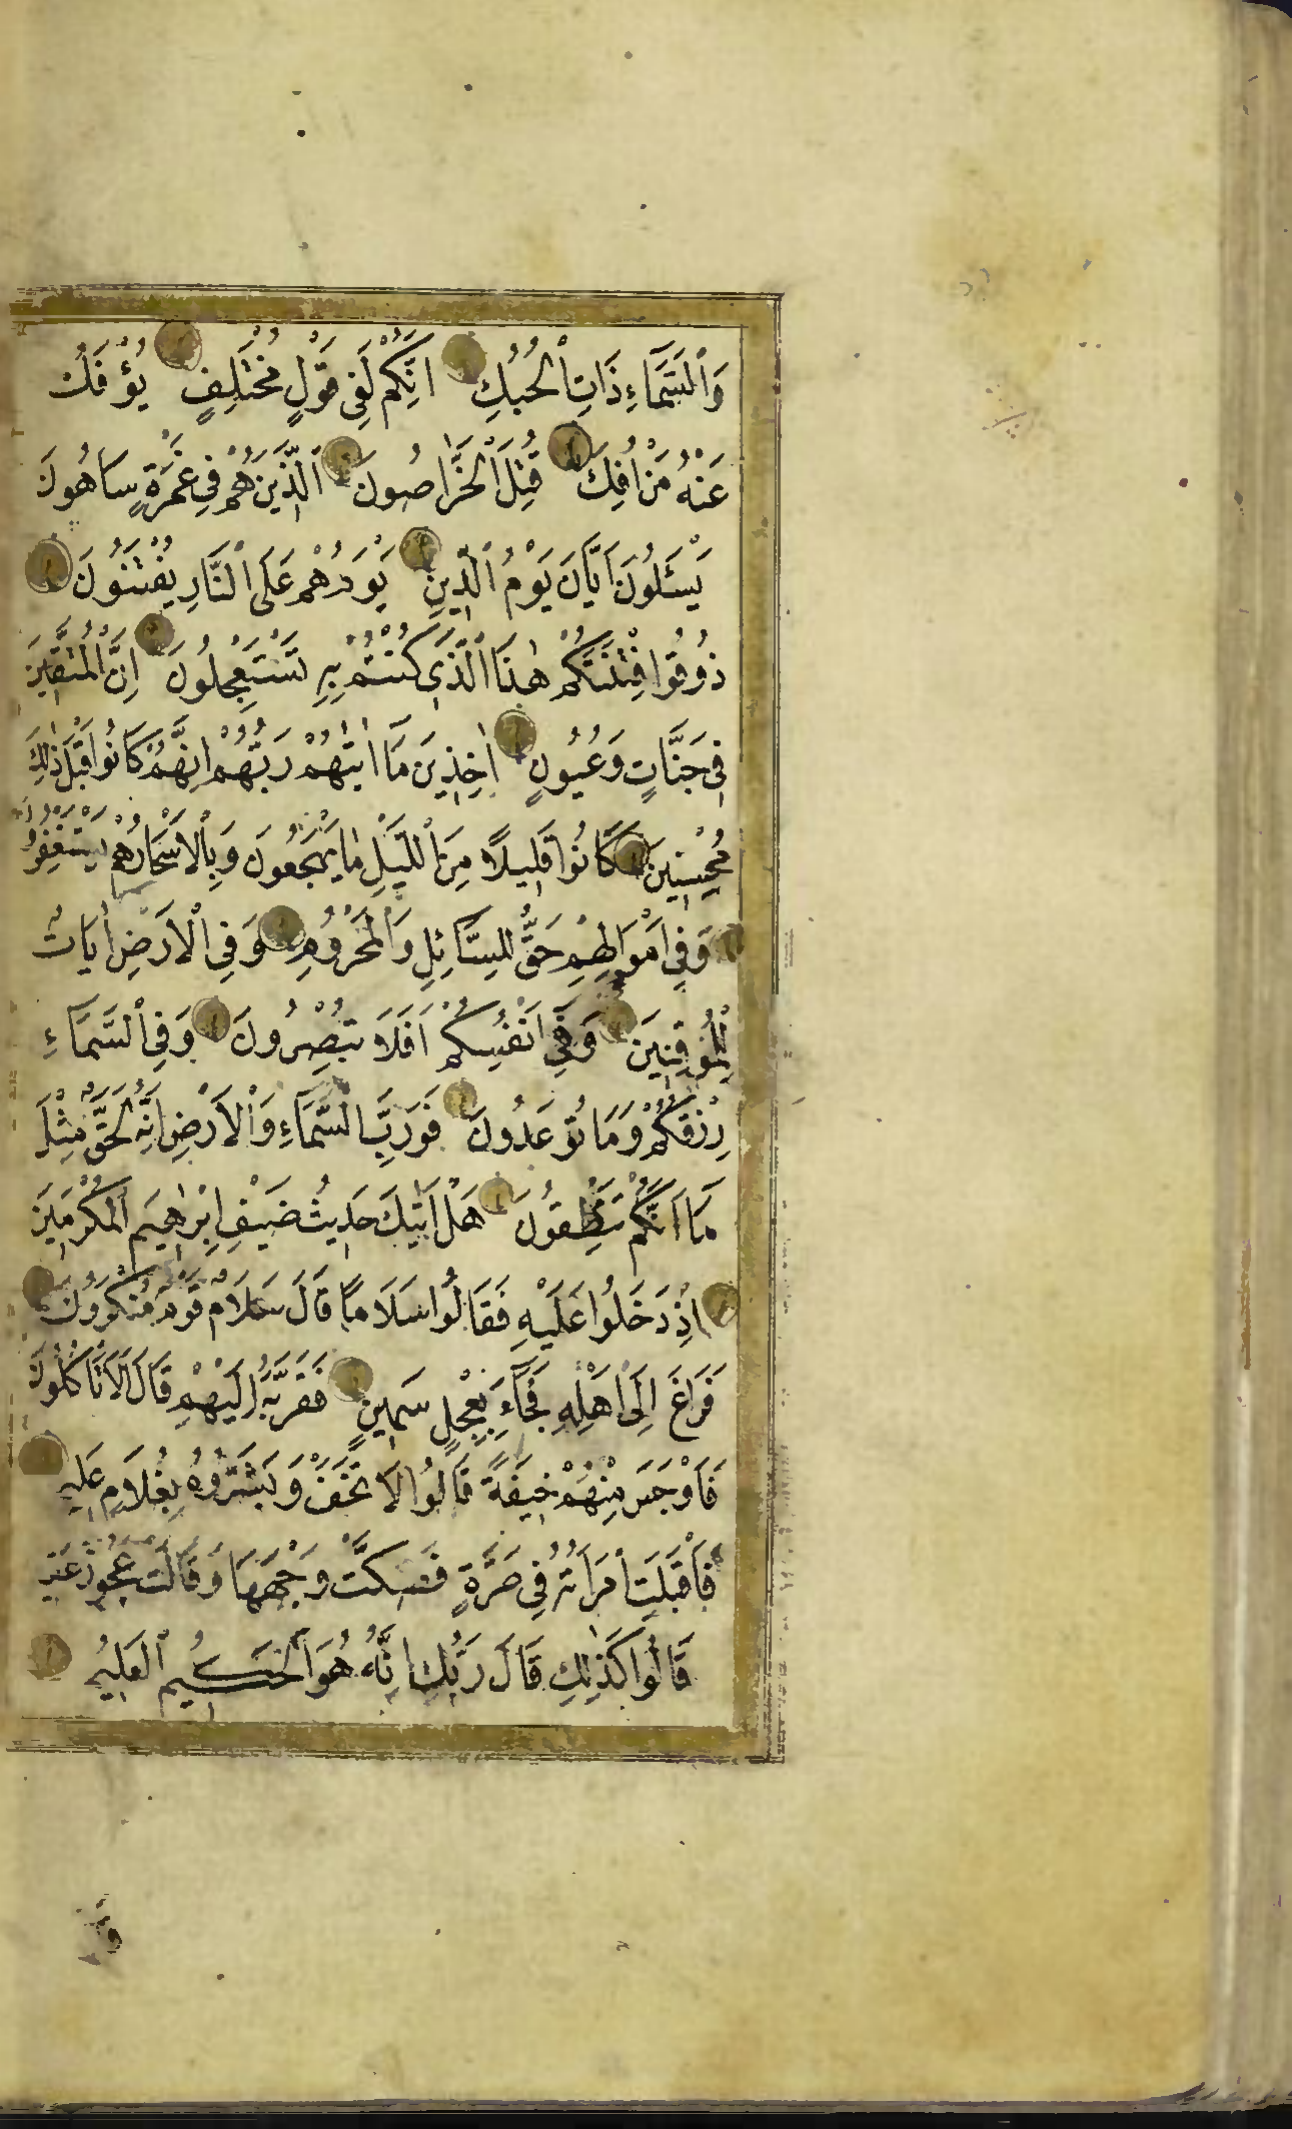 وَٱلسَّمَآءِ ذَاتِ ٱلْحُبُكِ اِنَّكُمْ لَفِى قَوْلٍ مُخْتَلِفٍ يُؤْفَكُ
عَنْهُ مَنْ اُفِكَ قُتِلَ ٱلْخَرَّاصُونَ ٱلَّذِينَ هُمْ فِى غَمْرَةٍ سَاهُونَ
يَسْئَلُونَ اَيَّانَ يَوْمُ ٱلدِّينِ يَوْمَ هُمْ عَلَى ٱلنَّارِ يُفْتَنُونَ
ذُوقُوا فِتْنَتَكُمْ هٰذَا ٱلَّذِى كُنْتُمْ بِهِ تَسْتَعْجِلُونَ اِنَّ ٱلْمُتَّقِينَ
فِى جَنَّاتٍ وَعُيُونٍ اٰخِذِينَ مَآ اٰتٰيهُمْ رَبُّهُمْ اِنَّهُمْ كَانُوا قَبْلَ ذٰلِكَ
مُحْسِنِينَ كَانُوا قَلِيلًا مِنَ ٱللَّيْلِ مَا يَهْجَعُونَ وَبِٱلْاَسْحَارِ هُمْ يَسْتَغْفِرُ
وَفِى اَمْوَالِهِمْ حَقٌّ لِلسَّآئِلِ وَٱلْمَحْرُومِ وَفِى ٱلْاَرْضِ اٰيَاتٌ
لِلْمُوقِنِينَ وَفِىٓ اَنْفُسِكُمْ اَفَلَا تُبْصِرُونَ وَفِى ٱلسَّمَآءِ
رِزْقُكُمْ وَمَا تُوعَدُونَ فَوَرَبِّ ٱلسَّمَآءِ وَٱلْاَرْضِ اِنَّهُ لَحَقٌّ مِثْلَ
مَآ اَنَّكُمْ تَنْطِقُونَ هَلْ اَتٰيكَ حَدِيثُ ضَيْفِ اِبْرٰهِيمَ ٱلْمُكْرَمِينَ
اِذْ دَخَلُوا عَلَيْهِ فَقَالُوا سَلَامًا قَالَ سَلَامٌ قَوْمٌ مُنْكَرُونَ
فَرَاغَ اِلٰٓى اَهْلِهِ فَجَآءَ بِعِجْلٍ سَمِينٍ فَقَرَّبَهُ اِلَيْهِمْ قَالَ اَلَا تَاْكُلُونَ
فَاَوْجَسَ مِنْهُمْ خِيفَةً قَالُوا لَا تَخَفْ وَبَشَّرُوهُ بِغُلَامٍ عَلِيمٍ
فَاَقْبَلَتِ ٱمْرَاَتُهُ فِى صَرَّةٍ فَصَكَّتْ وَجْهَهَا وَقَالَتْ عَجُوزٌ عَقِيمٌ
قَالُوا كَذٰلِكِ قَالَ رَبُّكِ اِنَّهُ هُوَ ٱلْحَكِيمُ ٱلْعَلِيمُ